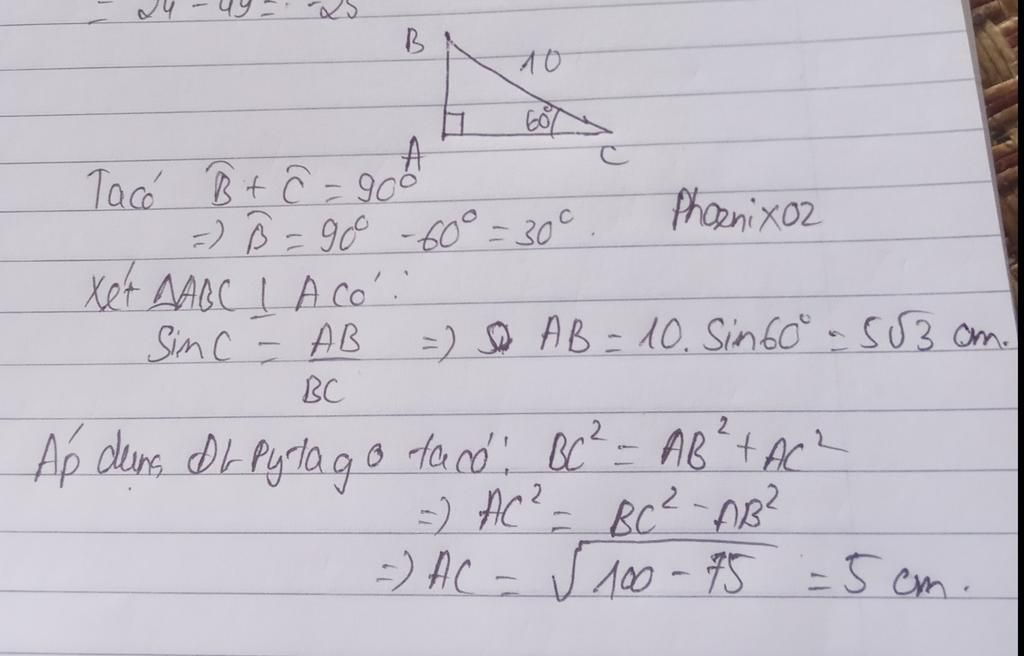 = 24 - 49 = -25
B
10
60°
A
C
Ta có B̂ + Ĉ = 90°
=> B̂ = 90° - 60° = 30°.
Phoenix02
Xét ΔABC ⊥ A có:
Sin C = AB/BC => AB = 10. Sin60° = 5√3 cm.
Áp dụng ĐL Pytago ta có: BC² = AB² + AC²
=> AC² = BC² - AB²
=> AC = √100 - 75 = 5 cm.